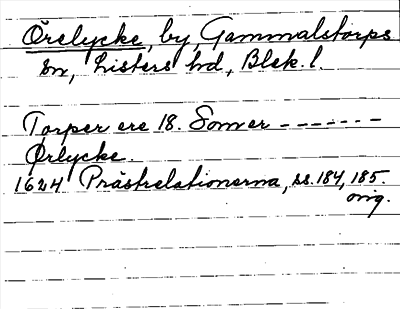 Örelycke, by, Gammalstorps
sn, Listers hd, Blek. l.
Torper ere 18. Somer -------
Ørlycke.
1624 Prästrelationerna, ss. 184, 185.
orig.